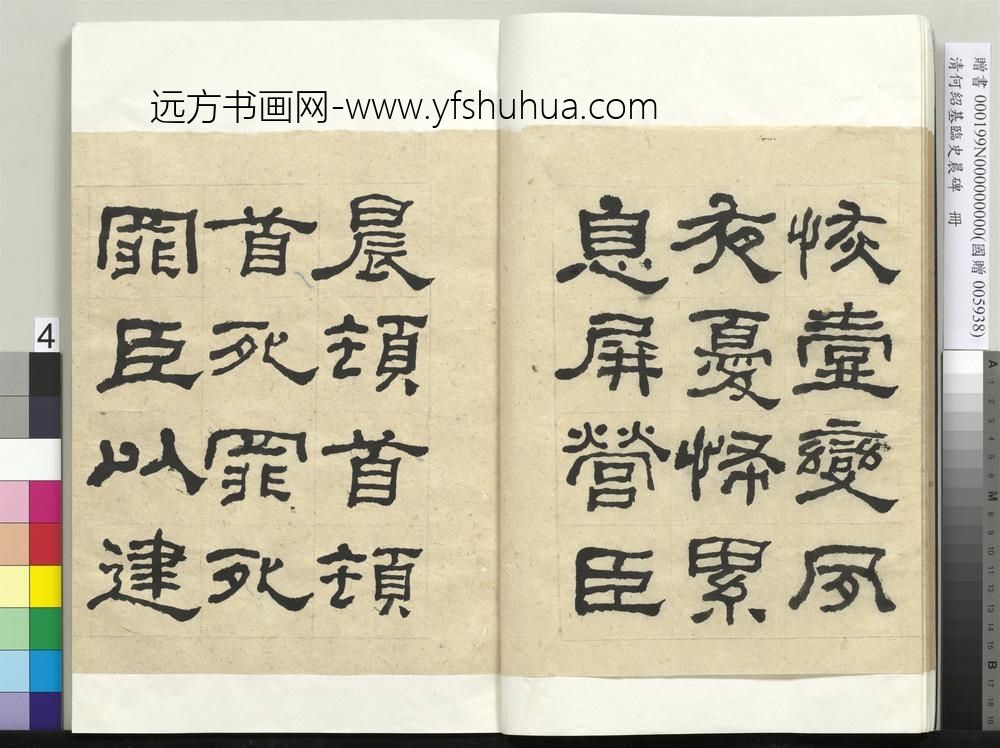 远方书画网-www.yfshuhua.com
恢壹變夙
夜憂怖累
息屏營臣
晨頓首頓
首死罪死
罪臣以建
贈書 000199N000000000(國贈 005938)
清何紹基臨史晨碑 冊
4
A 1 2 3 4 5 6 M 8 9 10 11 12 13 14 15 B 17 18 19